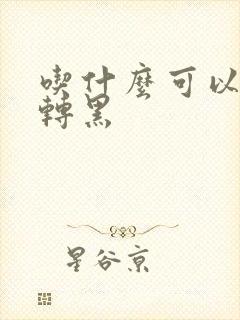 喫什麼可以
轉黑
星谷京